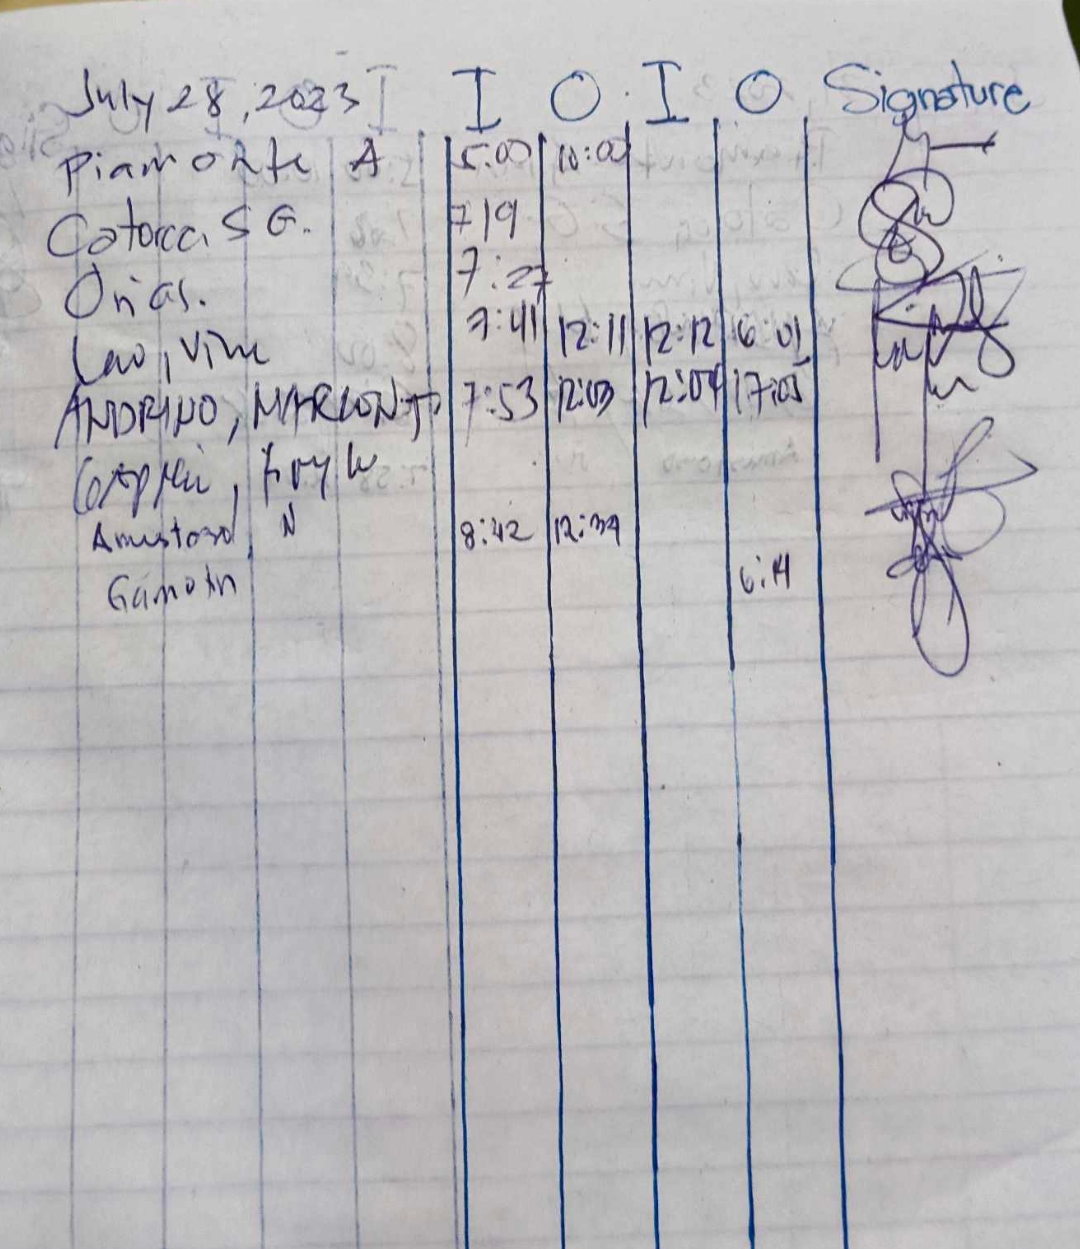 July 28, 2023 I O I O Signature
Piamonte A 5:00 10:00
Catorce, S G. 719
Orias. 7:27
Lao, Vine 7:41 12:11 12:12 6:01
ANDRINO, MARLON J. 7:53 12:03 12:04 17:05
N 8:42 12:39
Gamotin 6:14